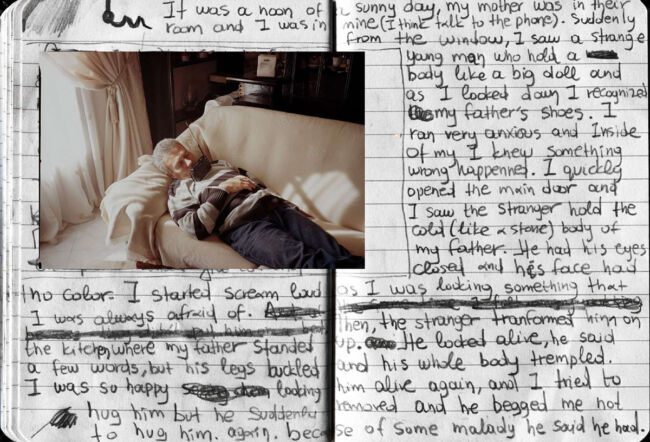 It was a noon of a sunny day, my mother was in their
room and I was in mine (I think talk to the phone). Suddenly
from the window, I saw a strange
young man who hold a
body like a big doll and
as I looked down I recognized
my father's shoes. I
ran very anxious and Inside
of my I knew something
wrong happenned. I quickly
opened the main door and
I saw the stranger hold the
cold (like a stone) body of
my father. He had his eyes
closed and his face had
no color. I started scream loud as I was looking something that
I was always afraid of.
then, the stranger tranformed him on
the kitchen, where my father standed up. He looked alive, he said
a few words, but his legs buckled and his whole body trempled.
I was so happy looking him alive again, and I tried to
hug him but he suddenly removed and he begged me not
to hug him. again. because of some malady he said he had.